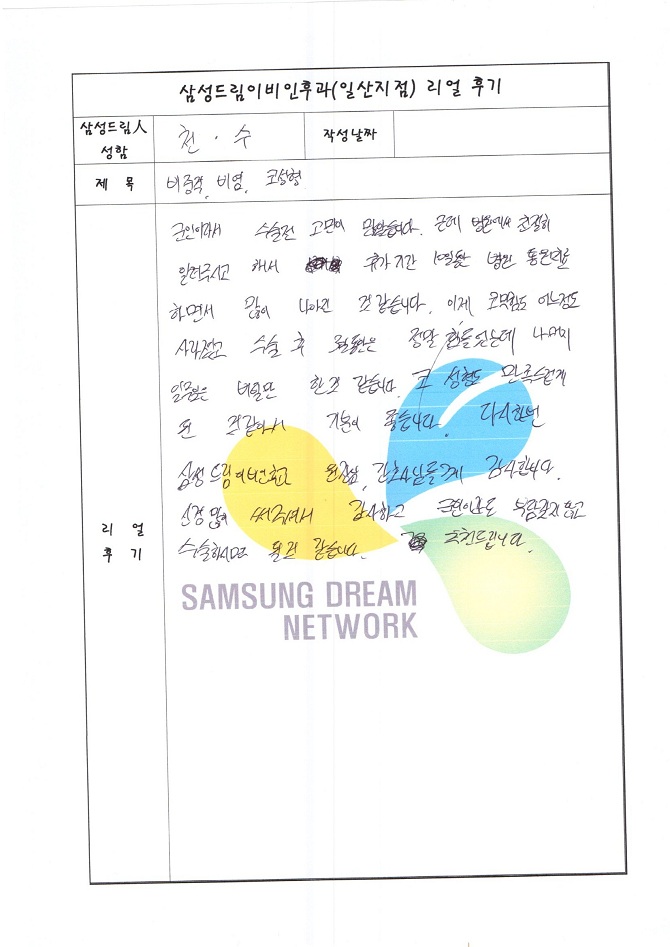 삼성드림이비인후과(일산지점) 리얼 후기
삼성드림人 성함
천 · 수
작성날짜
제 목
비중격, 비염, 코성형
리 얼 후 기
군인이라서 수술전 고민이 많았습니다. 근데 병원에서 친절히
알려주시고 해서 휴가기간 병원 통원치료
하면서 많이 나아진 것 같습니다. 이제 코막힘도 어느정도
사라졌고 수술 후 정말 힘들었는데 나머지
일주일은 버틸만 한것 같습니다. 코 성형도 만족스럽게
된 것같아서 기분이 좋습니다. 다시한번
삼성드림이비인후과 원장님, 간호사님들께 감사합니다.
신경 많이 써주셔서 감사하고 군인이라도 부담갖지 말고
수술하시면 될것 같습니다. 추천드립니다.
SAMSUNG DREAM
NETWORK